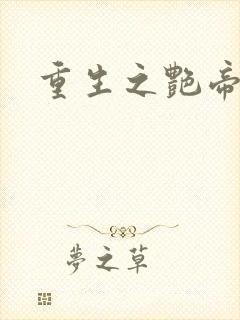 重生之艷帝
夢之草